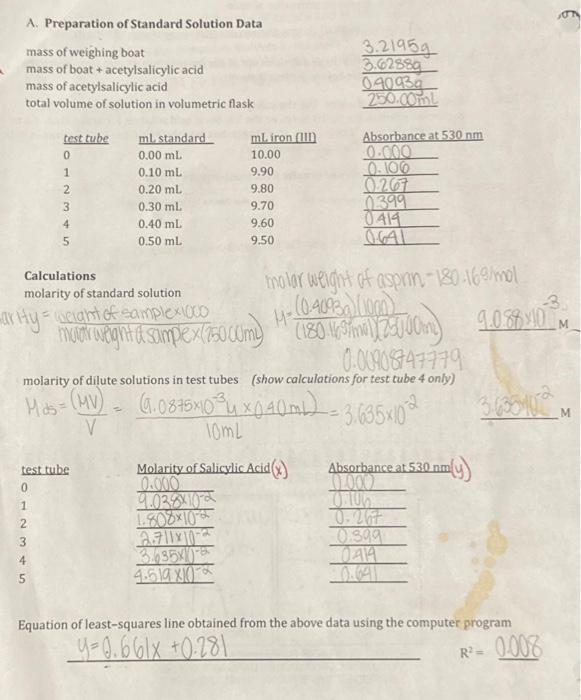 A. Preparation of Standard Solution Data
mass of weighing boat 3.2195g
mass of boat + acetylsalicylic acid 3.6288g
mass of acetylsalicylic acid 0.4093g
total volume of solution in volumetric flask 250.00mL
test tube mL standard mL iron (III) Absorbance at 530 nm
0 0.00 mL 10.00 0.000
1 0.10 mL 9.90 0.106
2 0.20 mL 9.80 0.267
3 0.30 mL 9.70 0.399
4 0.40 mL 9.60 0.414
5 0.50 mL 9.50 0.641
Calculations molar weight of asprin - 180.16g/mol
molarity of standard solution
arity = weight of sample x 1000 / molar weight of sample x (250.00mL) M = (0.4093g)(1000) / (180.169/mol)(250.00mL) 9.088x10^-3 M
0.00908747779
molarity of dilute solutions in test tubes (show calculations for test tube 4 only)
M as = (MV) / V = (9.0875x10^-3 M x 0.40mL) / 10mL = 3.635x10^-2 3.635x10^-2 M
test tube Molarity of Salicylic Acid (x) Absorbance at 530 nm (y)
0 0.000 0.000
1 9.038x10^-2 0.106
2 1.808x10^-2 0.267
3 2.711x10^-2 0.399
4 3.635x10^-2 0.414
5 4.519x10^-2 0.641
Equation of least-squares line obtained from the above data using the computer program
y=0.661x +0.281 R² = 0.008